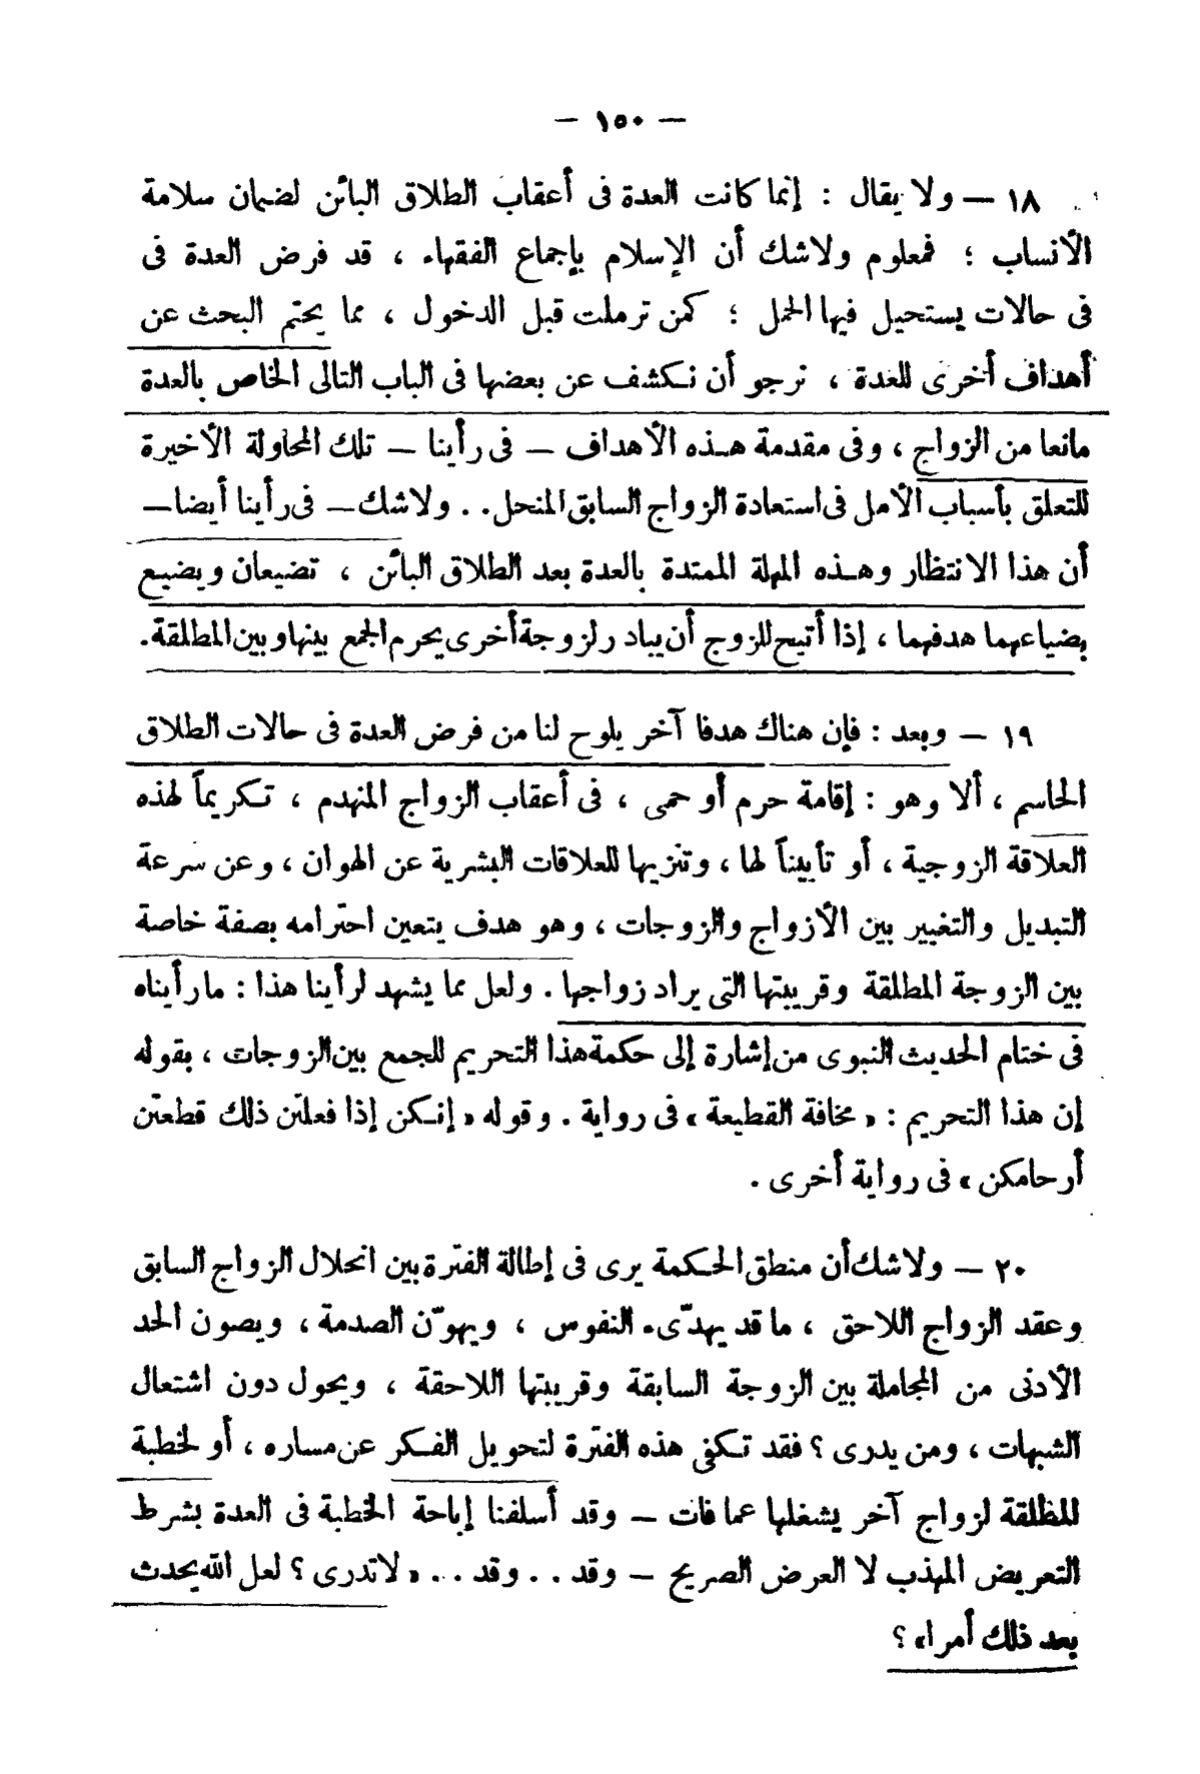 — ١٥٠ —
١٨ — ولا يقال : إنما كانت العدة فى أعقاب الطلاق البائن لضمان سلامة
الأنساب ؛ فمعلوم ولاشك أن الإسلام بإجماع الفقهاء ، قد فرض العدة فى
فى حالات يستحيل فيها الحمل ؛ كمن ترملت قبل الدخول ، مما يحتم البحث عن
أهداف أخرى للعدة ، نرجو أن نكشف عن بعضها فى الباب التالى الخاص بالعدة
مانعا من الزواج ، وفى مقدمة هذه الأهداف — فى رأينا — تلك المحاولة الأخيرة
للتعلق بأسباب الأمل فى استعادة الزواج السابق المنحل . . ولاشك — فى رأينا أيضا —
أن هذا الانتظار وهذه المهلة الممتدة بالعدة بعد الطلاق البائن ، تضيعان ويضيع
بضياعهما هدفهما ، إذا أتيح للزوج أن يبادر لزوجة أخرى يحرم الجمع بينها وبين المطلقة .
١٩ — وبعد : فإن هناك هدفا آخر يلوح لنا من فرض العدة فى حالات الطلاق
الحاسم ، ألا وهو : إقامة حرم أو حمى ، فى أعقاب الزواج المنهدم ، تكريماً لهذه
العلاقة الزوجية ، أو تأبيناً لها ، وتنزيها للعلاقات البشرية عن الهوان ، وعن سرعة
التبديل والتغيير بين الأزواج والزوجات ، وهو هدف يتعين احترامه بصفة خاصة
بين الزوجة المطلقة وقريبتها التى يراد زواجها . ولعل مما يشهد لرأينا هذا : ما رأيناه
فى ختام الحديث النبوى من إشارة إلى حكمة هذا التحريم للجمع بين الزوجات ، بقوله
إن هذا التحريم : « مخافة القطيعة » فى رواية . وقوله « إنكن إذا فعلتن ذلك قطعتن
أرحامكن » فى رواية أخرى .
٢٠ — ولاشك أن منطق الحكمة يرى فى إطالة الفترة بين انحلال الزواج السابق
وعقد الزواج اللاحق ، ما قد يهدّىء النفوس ، ويهوّن الصدمة ، ويصون الحد
الأدنى من المجاملة بين الزوجة السابقة وقريبتها اللاحقة ، ويحول دون اشتعال
الشبهات ، ومن يدرى ؟ فقد تكفى هذه الفترة لتحويل الفكر عن مساره ، أو لخطبة
للمطلقة لزواج آخر يشغلها عما فات — وقد أسلفنا إباحة الخطبة فى العدة بشرط
التعريض المهذب لا العرض الصريح — وقد . . وقد . . « لاتدرى ؟ لعل الله يحدث
بعد ذلك أمرا» ؟